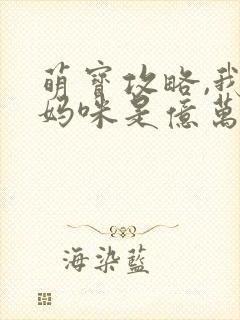 萌寶攻略,我
媽咪是億萬
海染藍